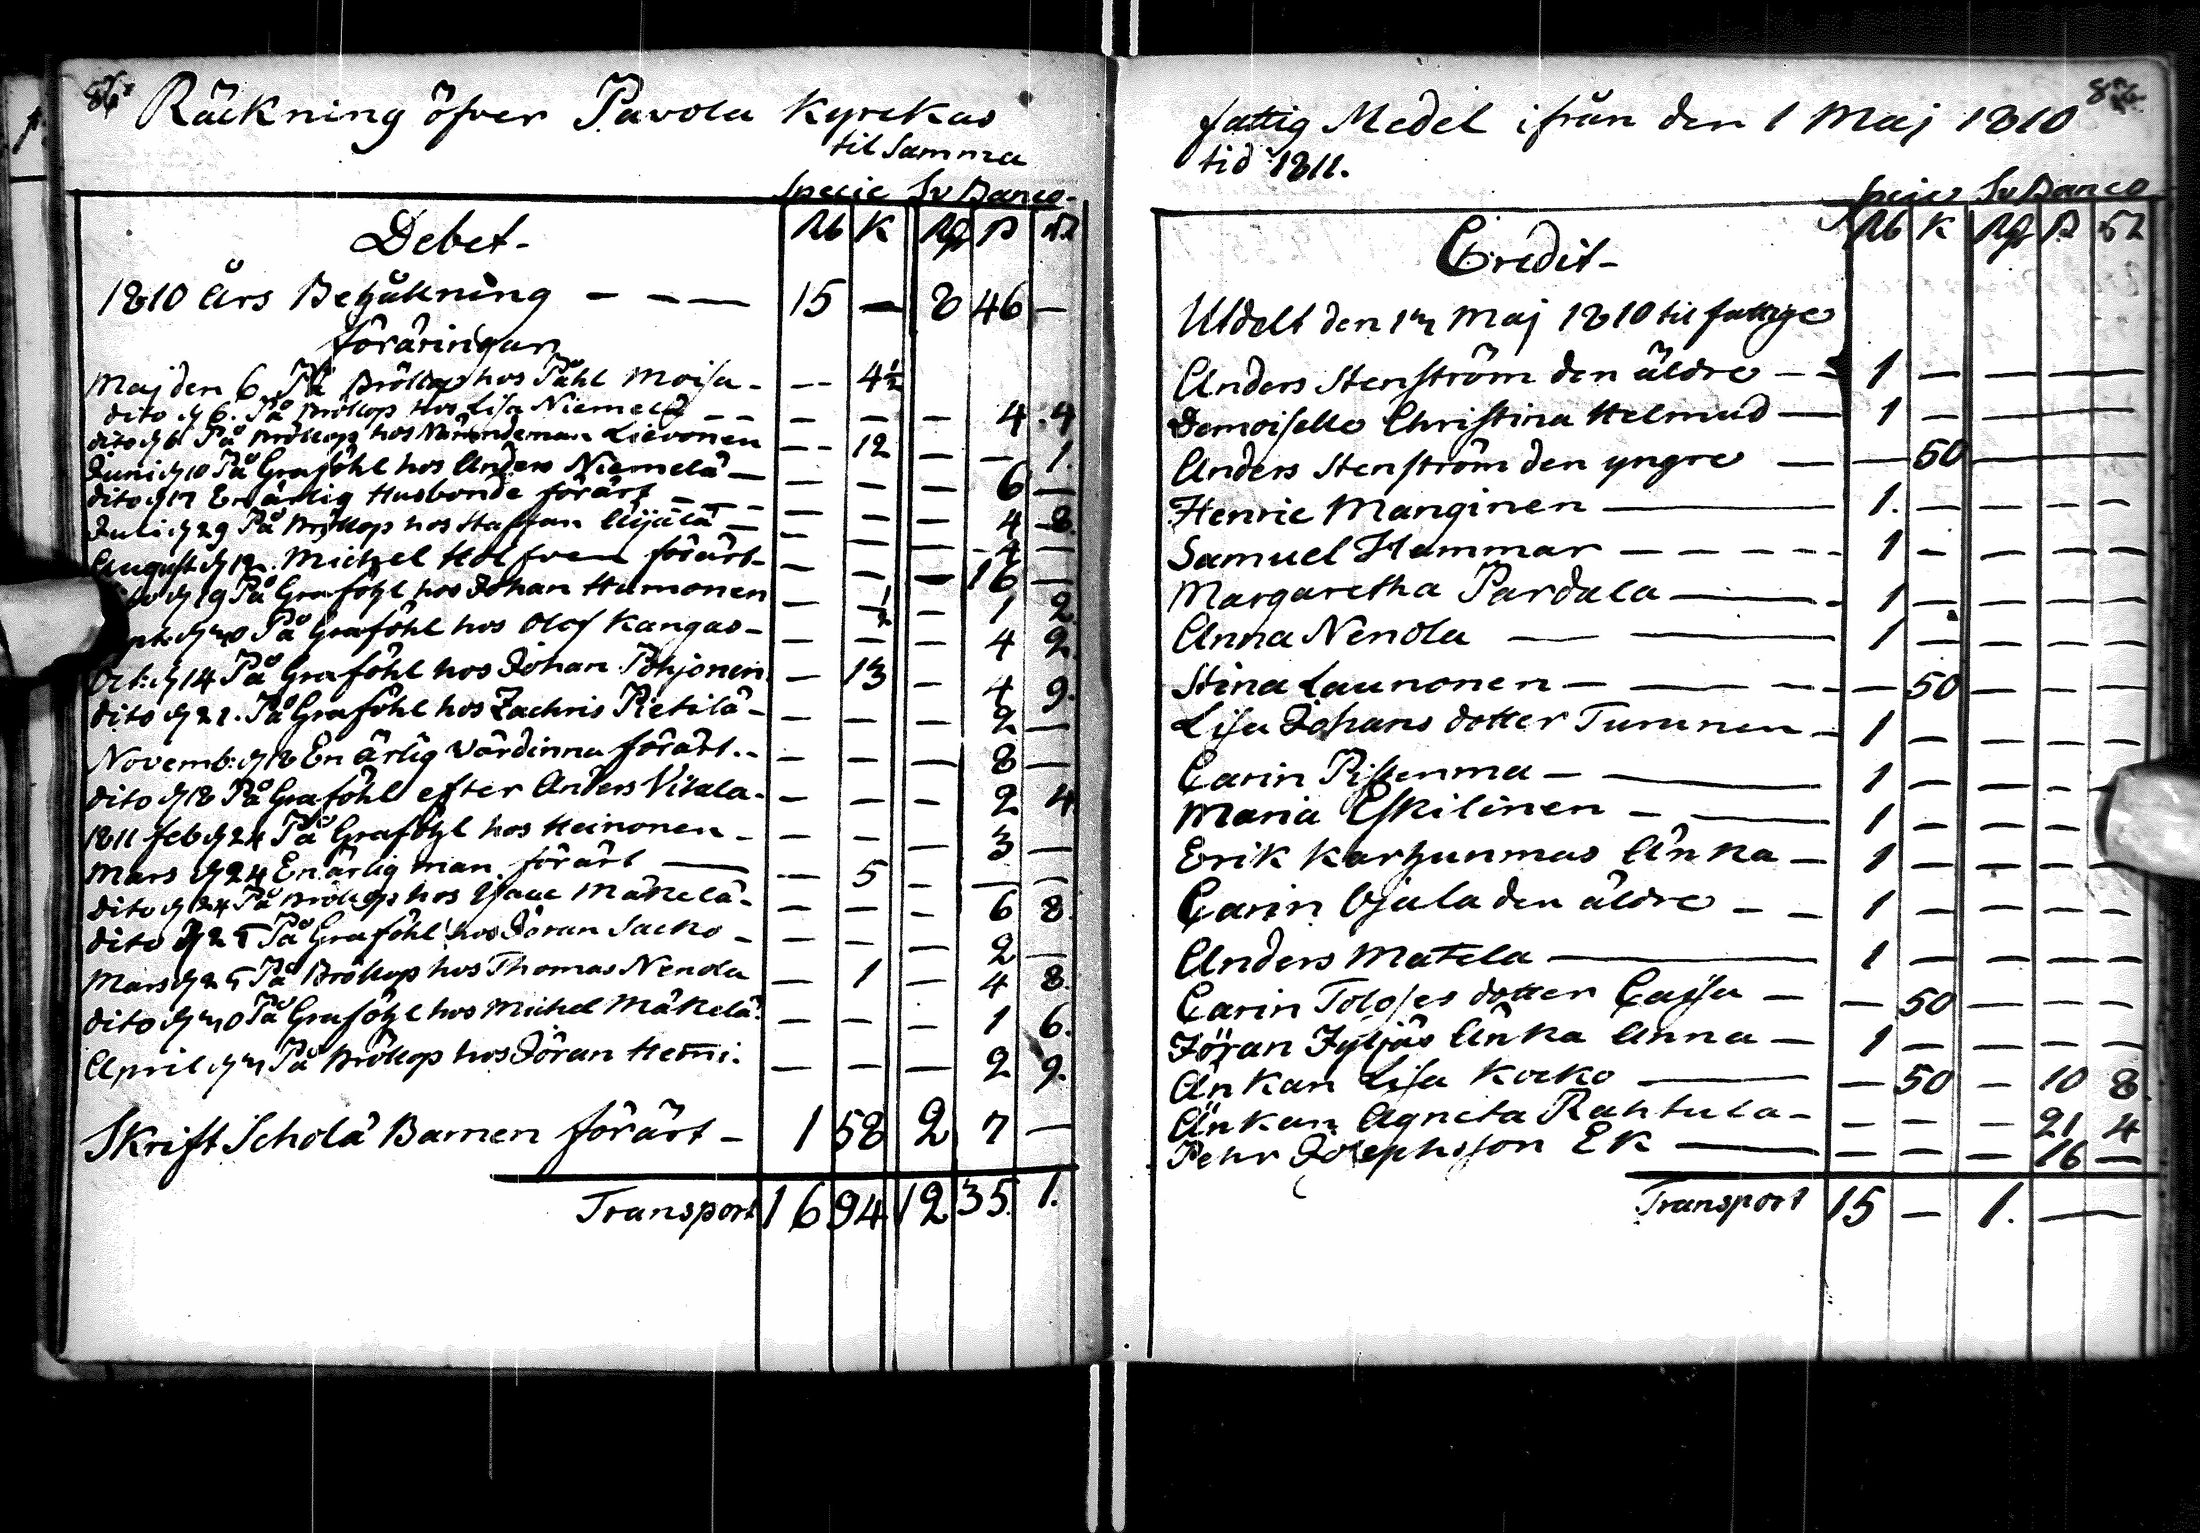 Räkning öfver Pavola Kyrckas
til Samma
Specie Sv Banco.
Debet- Rb K Rd ß rst
1810 års Behållning - - - 15 - 8 46 -
föräringar
Maj den 6 På Bröllop hos Påhl Moisa - -- 4½
dito d 6. På Bröllop hos Lisa Niemelä - - - - - 4. 4
dito d 6 På Bröllop hos Nämndeman Lievonen -- 12 - - 1.
Juni d 10 På Graföhl hos Anders Niemelä - - - - 6 -
dito d 17 En ärlig Husbonde förärt - - - - - 4 8
Juli d 29 På Bröllop hos Staffan Äijälä - - - - 4 -
August d 12. Michel Holfven förärt - - - - 16 -
dito d 19 På Graföhl hos Johan Hamonen - ½ - 1 2
På Graföhl hos Olof Kangas - - - - 4 2.
Oct. d 14 På Graföhl hos Johan Pohjonen - 13 - 4 9.
dito d 21. På Graföhl hos Zachris Pietilä - - - - 2 -
Novemb: d 18 En ärlig Värdinna förärt. - - - - 8 -
dito d 18 På Graföhl efter Anders Vitala - - - - 2 4
1811 feb d 24 På Graföhl hos Heinonen - - - - 3 -
Mars d 24 En ärlig man förärt - -- 5 - - -
dito d 24 På Bröllop hos Isaac Mäkelä - - - - 6 8.
dito d 25 På Graföhl hos Jöran Sacko - - - - 2 -
Mars d 25 På Bröllop hos Thomas Nenola - 1 - 4 8.
dito d 30 På Graföhl hos Michel Mäkelä. - - - 1 6.
April d 7 På Bröllop hos Jöran Hemi. - - - 2 9.
Skrift Schola Barnen förärt - 1 58 2 7 -
Transport 16 94 12 35. 1.
fattig Medel ifrån den 1 Maj 1810
tid 1811.
Specie Sv Banco
Credit- Rb K Rd ß rst
Utdelt den 1 Maj 1810 til fattige
Anders Stenström den äldre - - 1 - - - -
Demoiselle Christina Helmud - 1 - - - -
Anders Stenström den yngre - - 50 - - -
Henric Manginen - 1. - - - -
Samuel Hammar - - - - 1 - - - -
Margaretha Pardala - 1 - - - -
Anna Nenola - - 1 - - - -
Stina Launonen - - - - - 50 - - -
Lisa Johans dotter Turunen - 1 - - - -
Carin Pistenma - - 1 - - - -
Maria Eskilinen - - 1 - - - -
Erik Karhunmas Änka - 1 - - - -
Carin Ojala den äldre - - 1 - - - -
Anders Matela - 1 - - - -
Carin Tolosses dotter Caisa - - 50 - - -
Jöran Jyljäs Änka Anna - 1 - - - -
Änkan Lisa Kocko - - 50 - 10 8.
Änkan Agneta Rahtula - - - - 21 4
Pehr Josephsson Ek - - - - 16 -
Transport 15 - 1. -